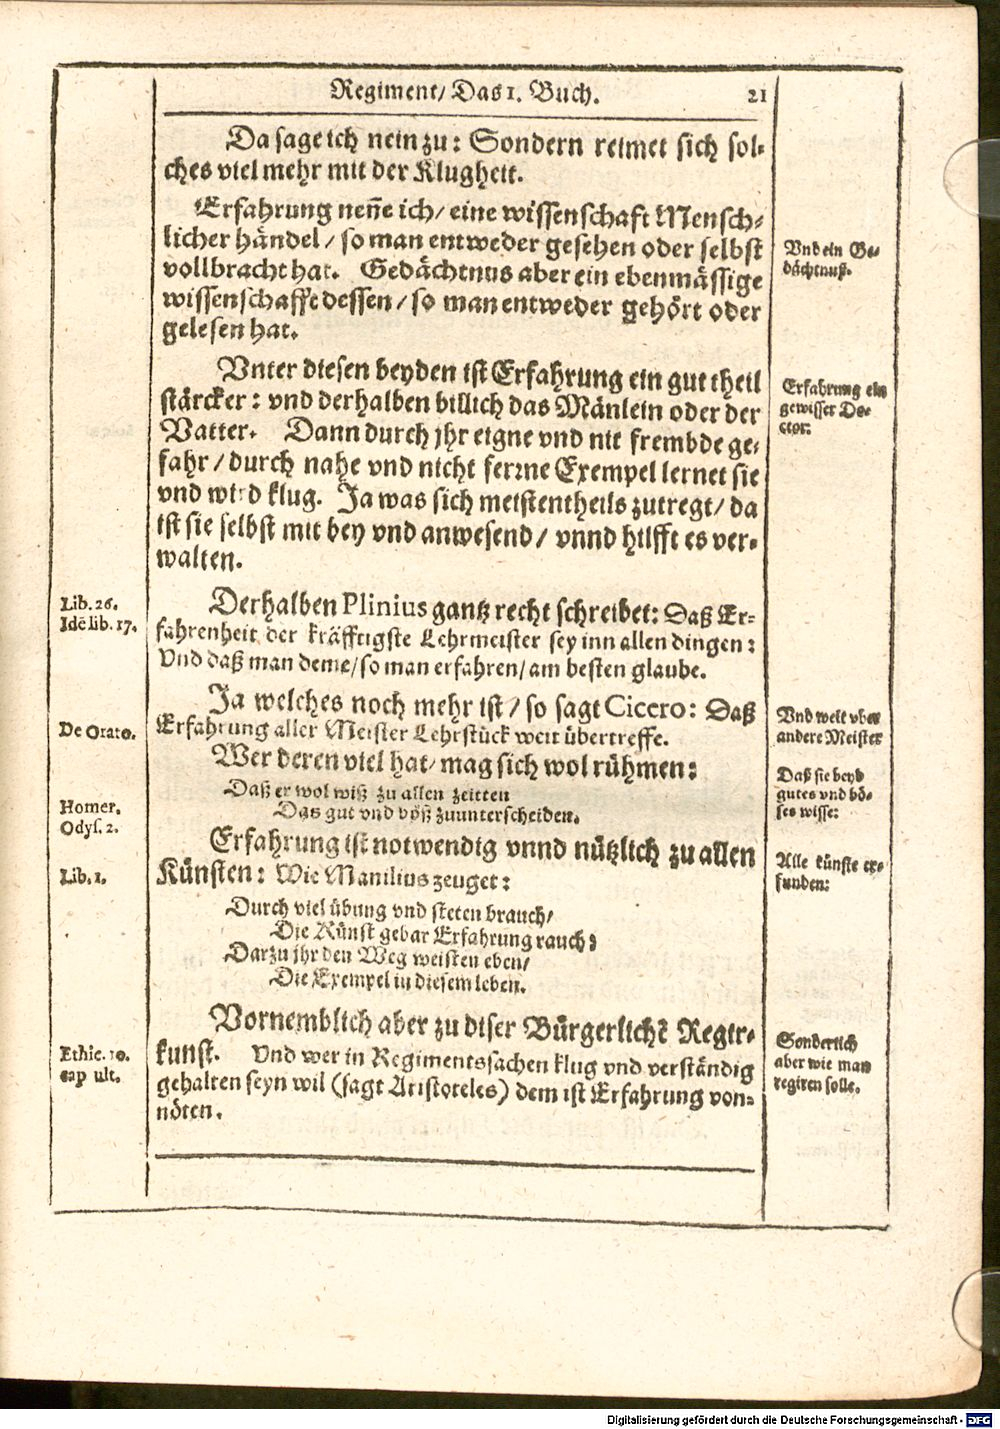 Regiment/ Das 1. Buch. 21
Da sage ich nein zu: Sondern reimet sich sol-
ches viel mehr mit der Klugheit.
Erfahrung neñe ich/ eine wissenschaft Mensch-
licher händel/ so man entweder gesehen oder selbst
vollbracht hat. Gedächtnus aber ein ebenmässige
wissenschafft dessen/ so man entweder gehört oder
gelesen hat.
Vnd ein Ge-
dächtnuß.
Vnter diesen beyden ist Erfahrung ein gut theil
stärcker: vnd derhalben billich das Mänlein oder der
Vatter. Dann durch jhr eigne vnd nit frembde ge-
fahr/ durch nahe vnd nicht ferrne Exempel lernet sie
vnd wird klug. Ja was sich meistentheils zutregt/ da
ist sie selbst mit bey vnd anwesend/ vnnd hilfft es ver-
walten.
Erfahrung ein
gewisser Do-
ctor:
Derhalben Plinius gantz recht schreibet: Daß Er-
fahrenheit der kräfftigste Lehrmeister sey inn allen dingen:
Vnd daß man deme/ so man erfahren/ am besten glaube.
Lib. 26.
Idē lib. 17.
Ja welches noch mehr ist/ so sagt Cicero: Daß
Erfahrung aller Meister Lehrstück weit übertreffe.
De Orato.
Vnd weit vber
andere Meister
Wer deren viel hat/ mag sich wol rühmen:
Daß er wol wiß zu allen zeitten
Das gut vnd böß zuunterscheiden.
Homer.
Odys. 2.
Daß sie beyd
gutes vnd bö-
ses wisse:
Erfahrung ist notwendig vnnd nützlich zu allen
Künsten: Wie Manilius zeuget:
Lib. 1.
Alle künste er-
funden:
Durch viel übung vnd steten brauch/
Die Künst gebar Erfahrung rauch:
Darzu jhr den Weg weisten eben/
Die Exempel in diesem leben.
Vornemblich aber zu diser Bürgerlichē Regir-
kunst. Vnd wer in Regimentssachen klug vnd verständig
gehalten seyn wil (sagt Aristoteles) dem ist Erfahrung von-
nöten.
Ethic. 10.
cap ult.
Sonderlich
aber wie man
regiren solle.
Digitalisierung gefördert durch die Deutsche Forschungsgemeinschaft - DFG